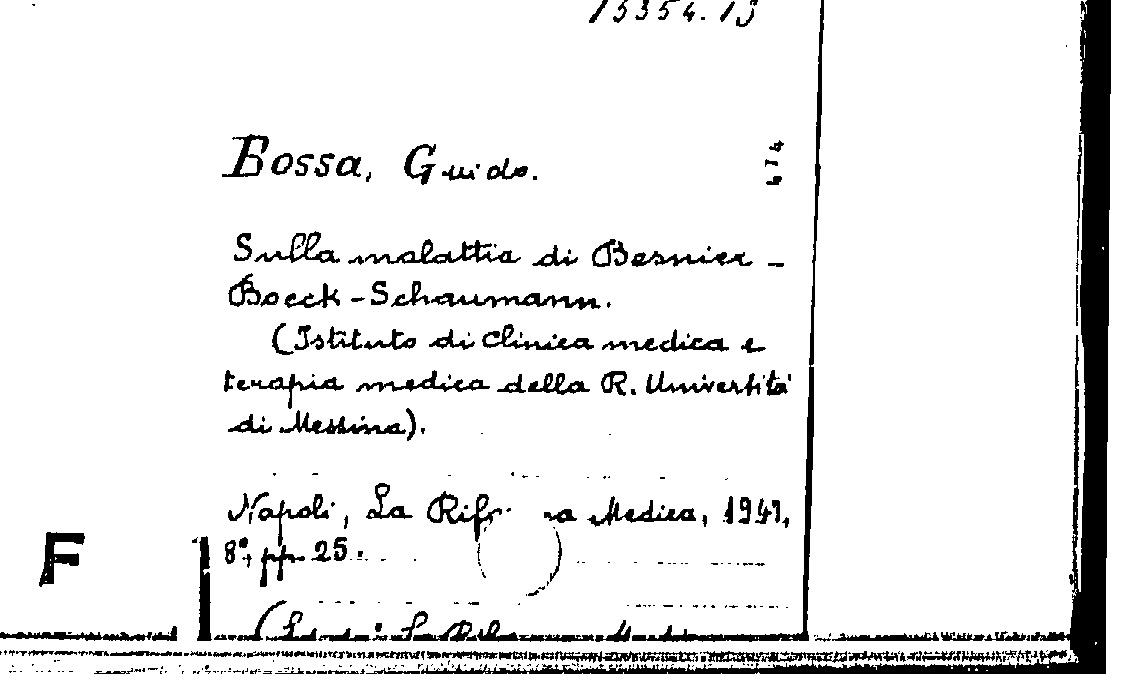 15354.13
Bossa, Guido.
Sulla malattia di Besnier-
Boeck-Schaumann.
(Istituto di clinica medica e
terapia medica della R. Università
di Messina).
Napoli, La Medica, 1941,
8°, pp. 25.
F